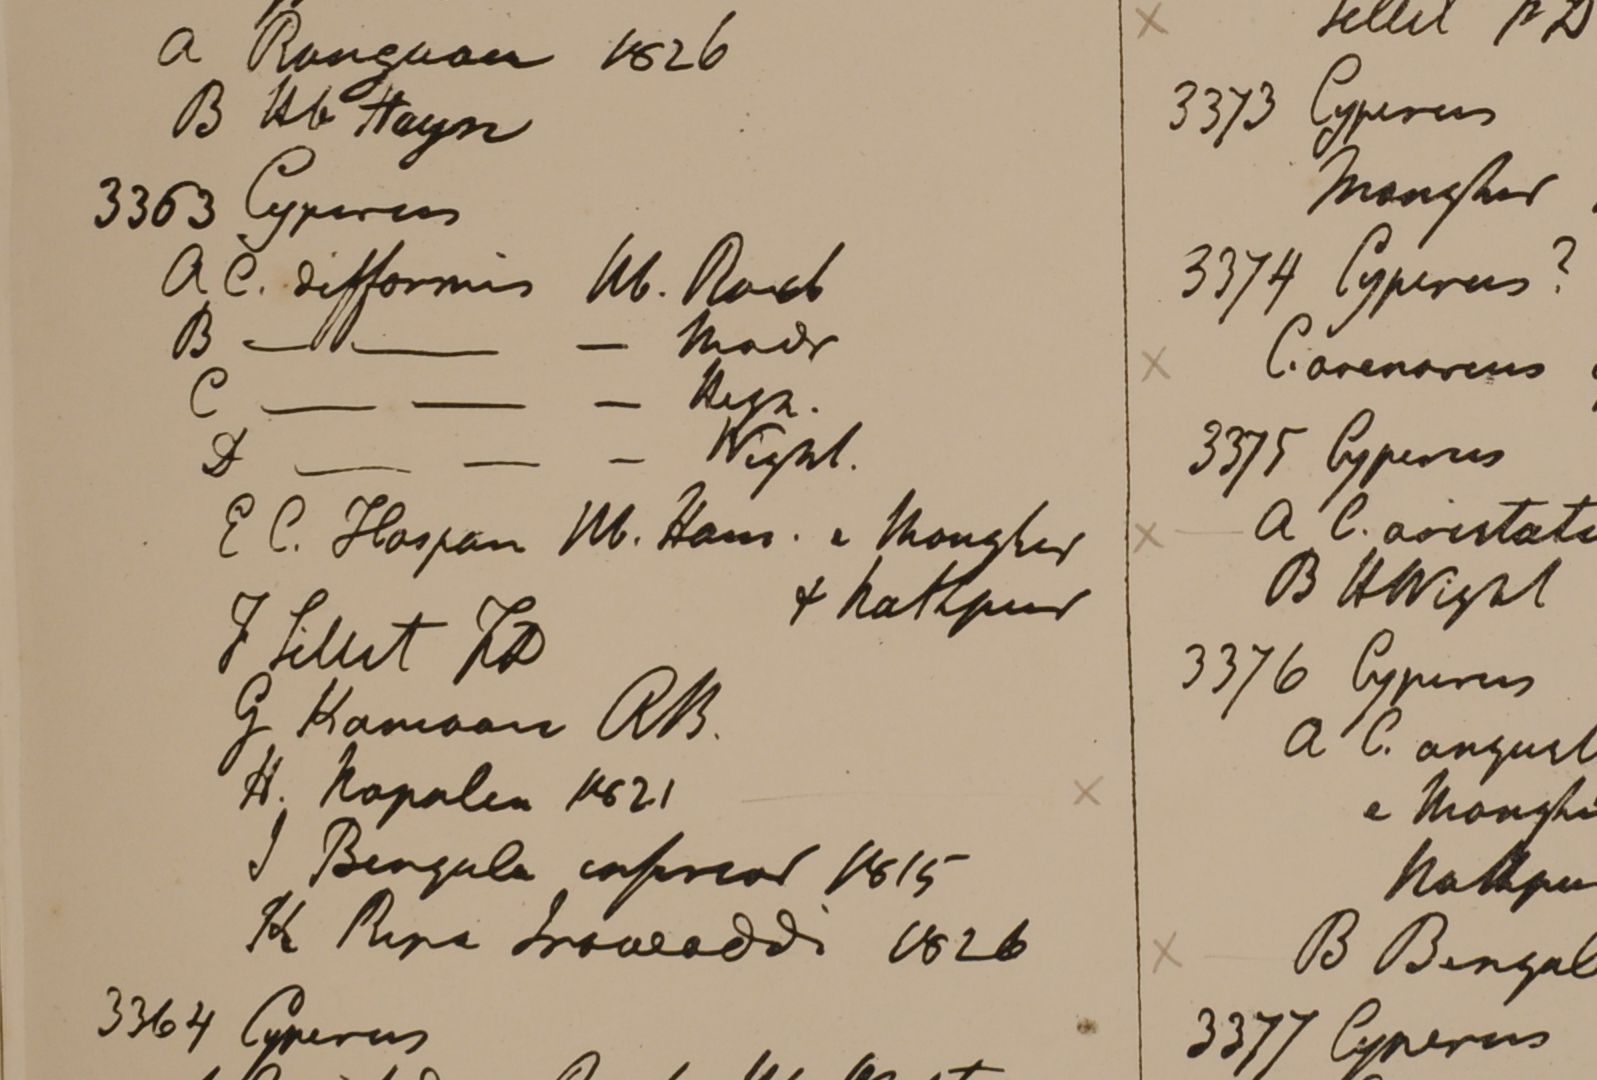 A Rangoon 1826
B Hb Heyn
3363 Cyperus
A C. difformis Hb. Roxb
B — — — Madr
C — — — Heyn.
D — — — Wight.
E C. Haspan Hb. Ham. e Monghir
& Nathpur
F Sillet FD
G Kamaon RB.
H. Napalia 1821
I Bengala inferior 1815
K Ripa Irawaddi 1826
3364 Cyperus
Sillet
3373 Cyperus
Monghir
3374 Cyperus?
C. arenarius
3375 Cyperus
A C. aristat
B H Wight
3376 Cyperus
A C. angust
e Monghi
Nathpu
B Bengal
3377 Cyperus